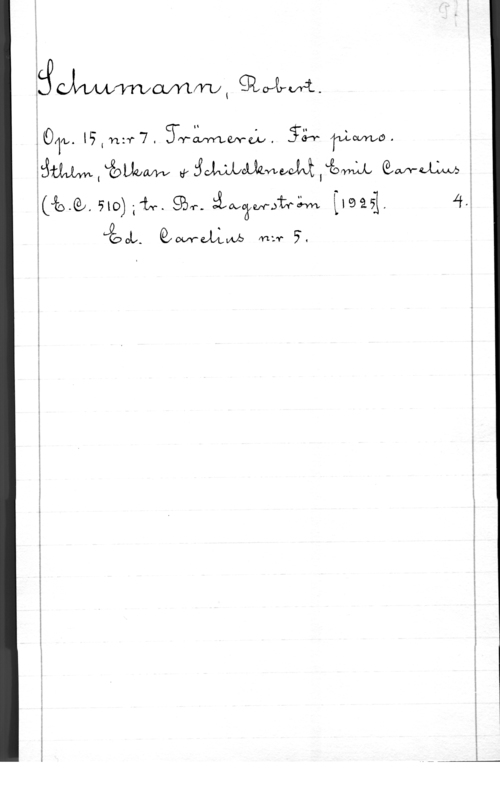 Schumann, Robert.
Op. 15, n:r 7. Trämerei. För piano.
Sthlm, Elkan & Schildknecht, Emil Carelius
(E.C. 510); tr. Br. Lagerström [1925]. 4.
Ed. Carelius n:r 5.